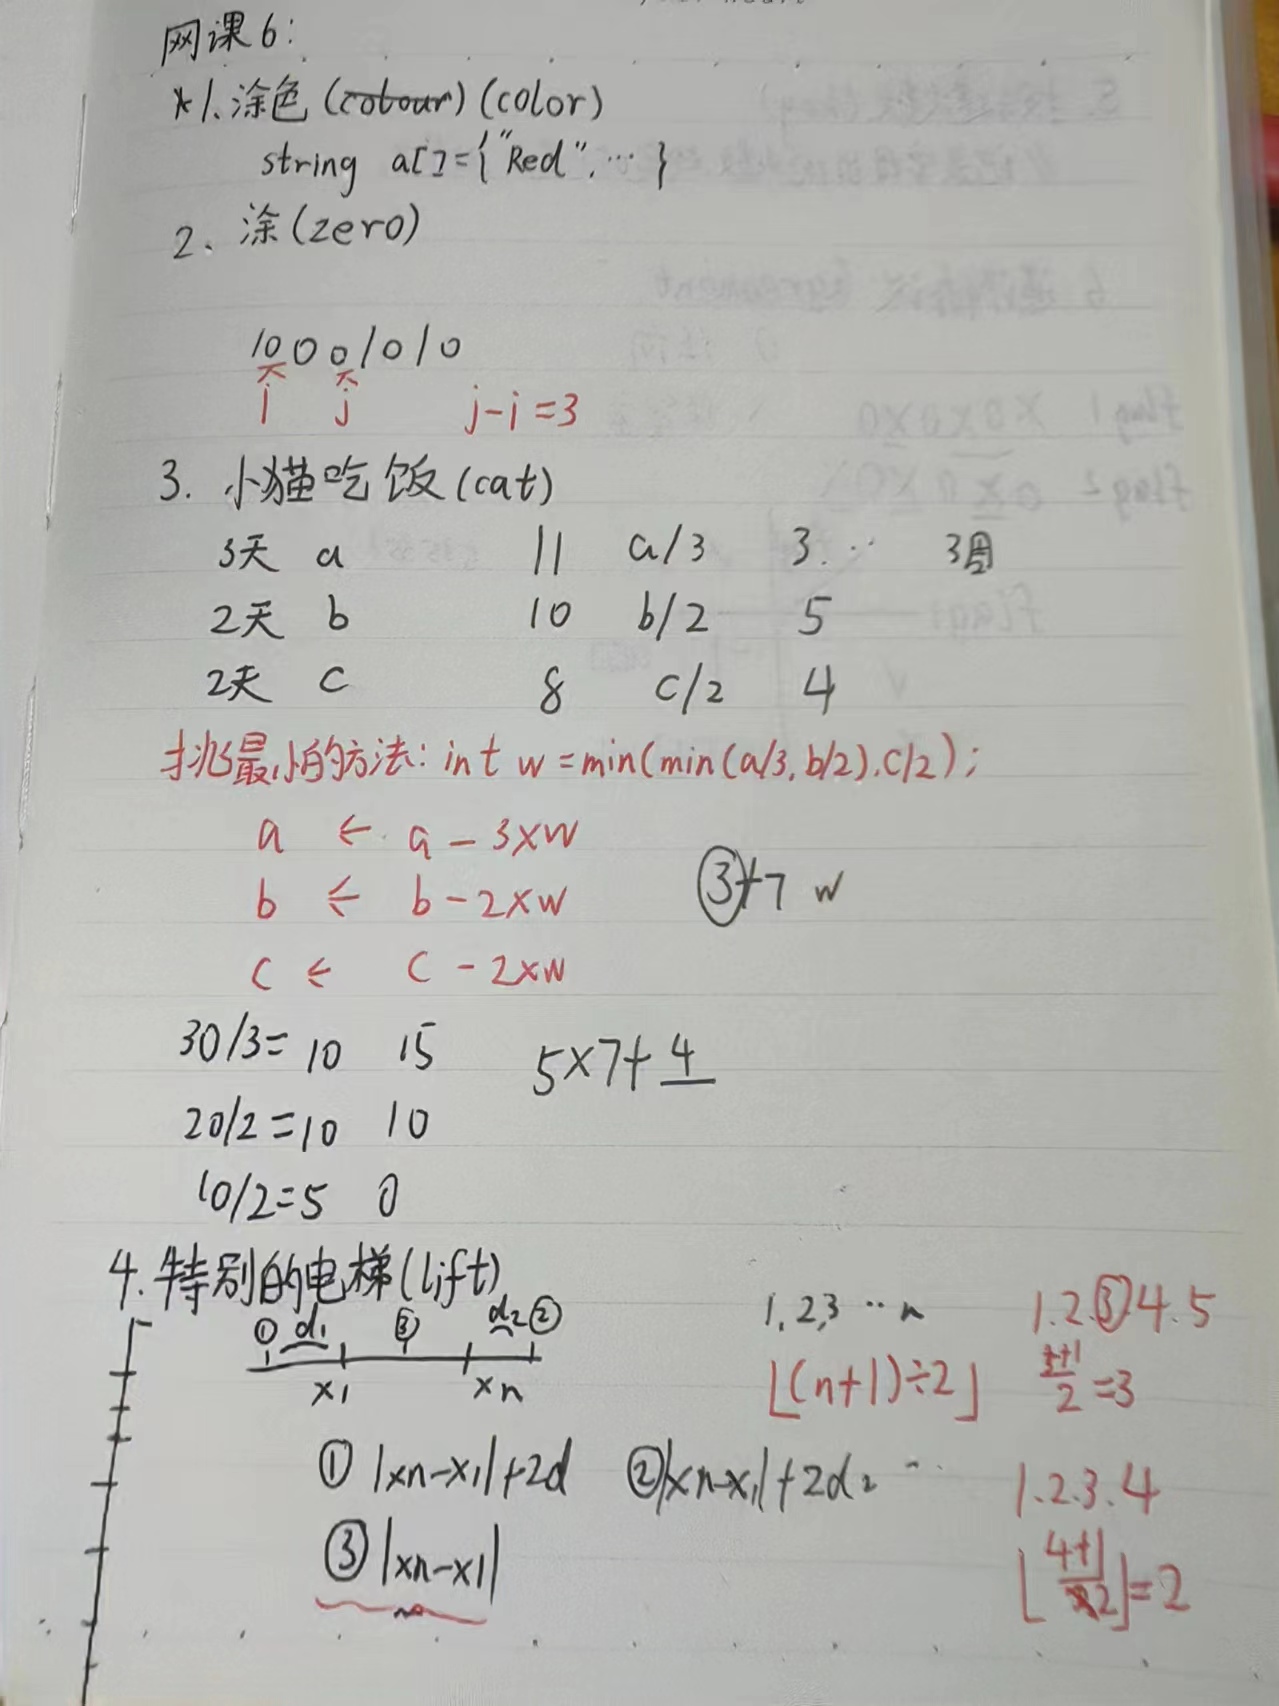 网课6:
*1.涂色(colour)(color)
string a[]={"Red",…}
2、涂(zero)
10001010
i j j-i=3
3. 小猫吃饭(cat)
3天 a 11 a/3 3… 3周
2天 b 10 b/2 5
2天 c 8 c/2 4
挑最小的方法: int w=min(min(a/3,b/2),c/2);
a ← a-3×w
b ← b-2×w
c ← c-2×w
③+7 w
30/3=10 15
20/2=10 10
10/2=5 0
5×7+4
4.特别的电梯(lift)
① d1 ③ d2 ②
x1 xn
1,2,3…n
⌊(n+1)÷2⌋
1.2.③.4.5
/2=3
① |xn-x1|+2d ② |xn-x1|+2d2 …
③ |xn-x1|
1.2.3.4
⌊4+1/2⌋=2